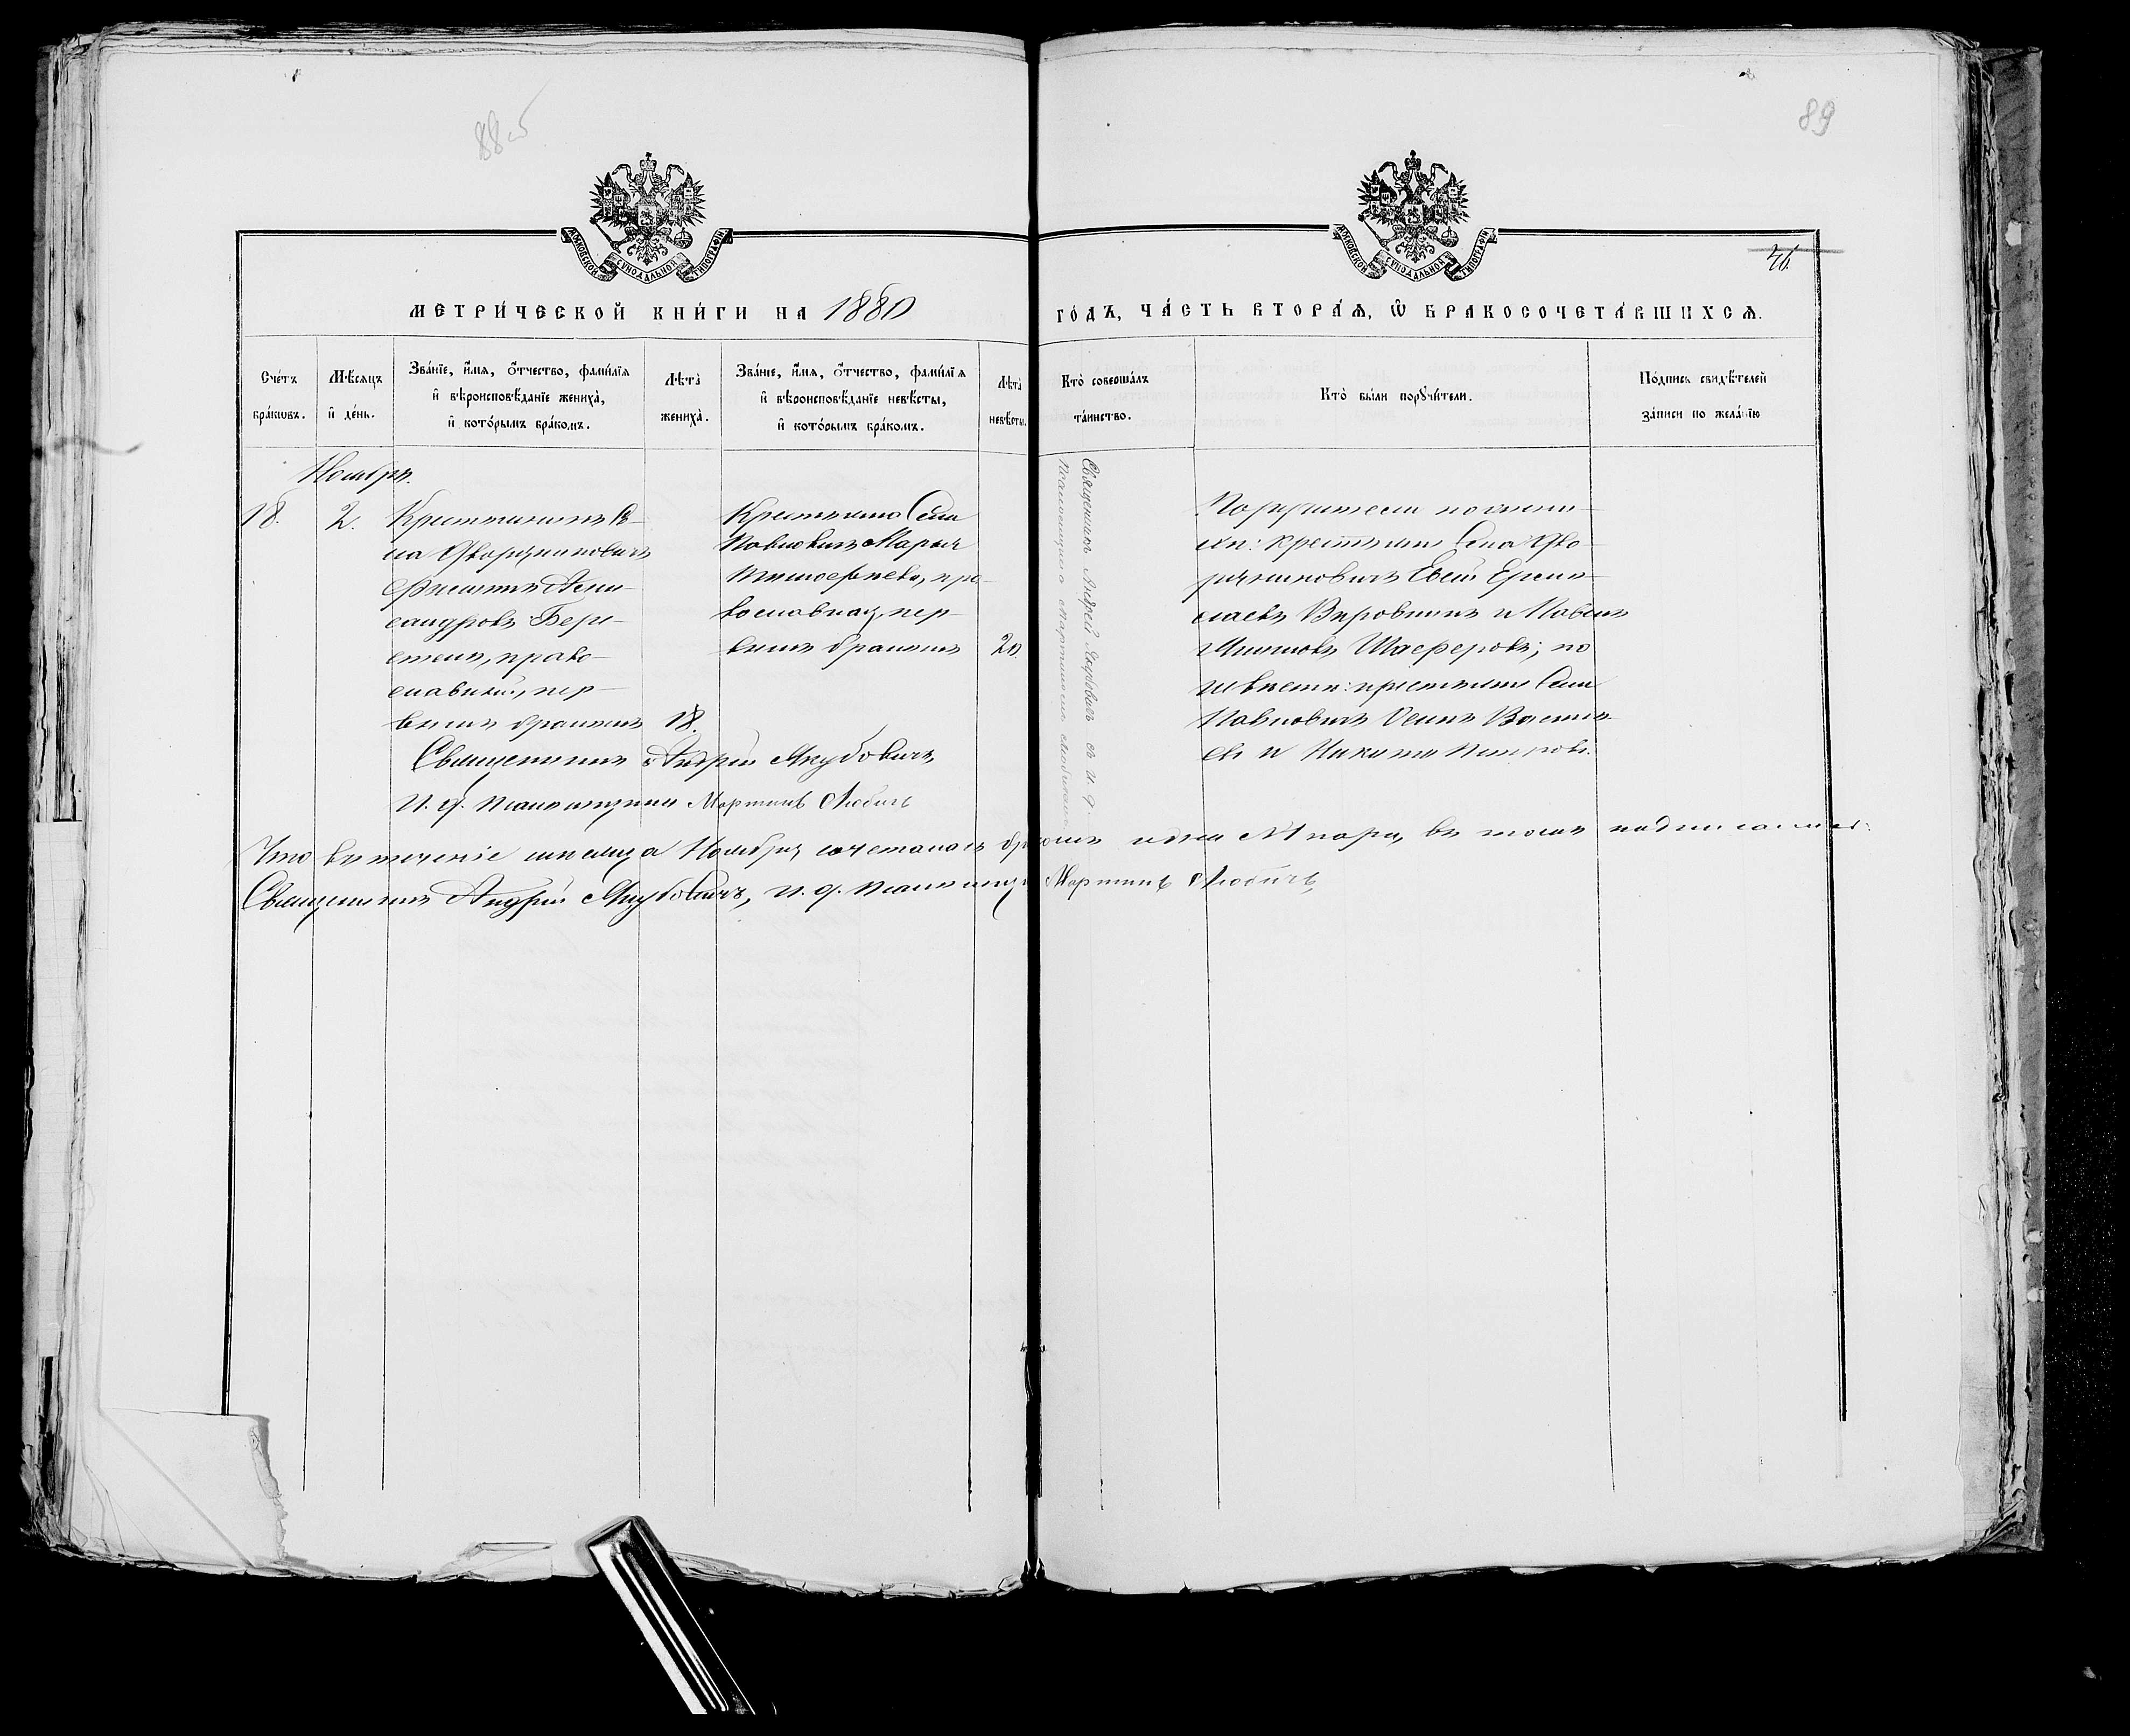 88 об
89
МОСКОВСКОЙ СѴНОДАЛЬНОЙ ТИПОГРАФІИ
МОСКОВСКОЙ СѴНОДАЛЬНОЙ ТИПОГРАФІИ
МЕТРИ́ЧЕСКОЙ КНИ́ГИ НА 1880
ГО́ДЪ, ЧА́СТЬ ВТОРА́Ѧ, Ѿ БРАКОСОЧЕТА́ВШИХСѦ.
Сче́тъ
бра́кѡвъ.
Мѣ́сѧцъ
и҆ де́нь.
Зва́нїе, и҆́мѧ, о҆́тчество, фами́лїѧ
и҆ вѣроисповѣ́данїе жениха̀,
и҆ кото́рымъ бра́комъ.
Лѣта̀
жениха̀.
Зва́нїе, и҆́мѧ, о҆́тчество, фами́лїѧ
и҆ вѣроисповѣ́данїе невѣ́сты,
и҆ кото́рымъ бра́комъ.
Лѣта̀
невѣ́сты.
Кто̀ соверша́лъ
та́инство.
Кто̀ бы́ли порꙋчи́тели.
По́дпись свидѣ́телей
за́писи по жела́нїю
Ноябрь.
18.
2.
Крестьянинъ Се-
ла
Филиппъ Алек-
сандровъ
право-
славный, пер-
вымъ бракомъ
18.
Крестьянка Села
Павловичъ Марья
Тимофеева, пра-
вославная, пер-
вымъ бракомъ
20.
Священникъ Андрей Якубовичъ и и. д.
Поручители по жени-
хѣ: крестьяне Села Дво-
ряниновичъ
и Павелъ
по
невѣстѣ: крестьяне Села
Павловичъ Осипъ Василь-
евъ и Никита Петровъ.
Священникъ Андрей Якубовичъ
И. д. псаломщика Мартинъ Любичъ
Что въ теченіе мѣсяца Ноября сочеталась бракомъ одна 1 пара, въ томъ подписались:
Священникъ Андрей Якубовичъ, и. д. псаломщ. Мартинъ Любичъ